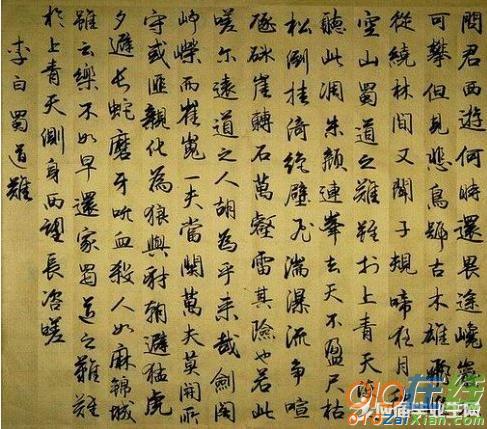 問君西遊何時還畏途巉巖
可攀但見悲鳥號古木雄飛
從繞林間又聞子規啼夜月
空山蜀道之難難於上青天
聽此凋朱顏連峯去天不盈尺枯
松倒挂倚絕壁飛湍瀑流争喧
豗砯崖轉石萬壑雷其險也若此
嗟尔遠道之人胡為乎来哉劍閣
崢嶸而崔嵬一夫當関萬夫莫開所
守或匪親化為狼與豺朝避猛虎
夕避長蛇磨牙吮血殺人如麻錦城
雖云樂不如早還家蜀道之難難
於上青天側身西望長咨嗟
李白蜀道難
910在线
910zaixian.com
应届毕业生网